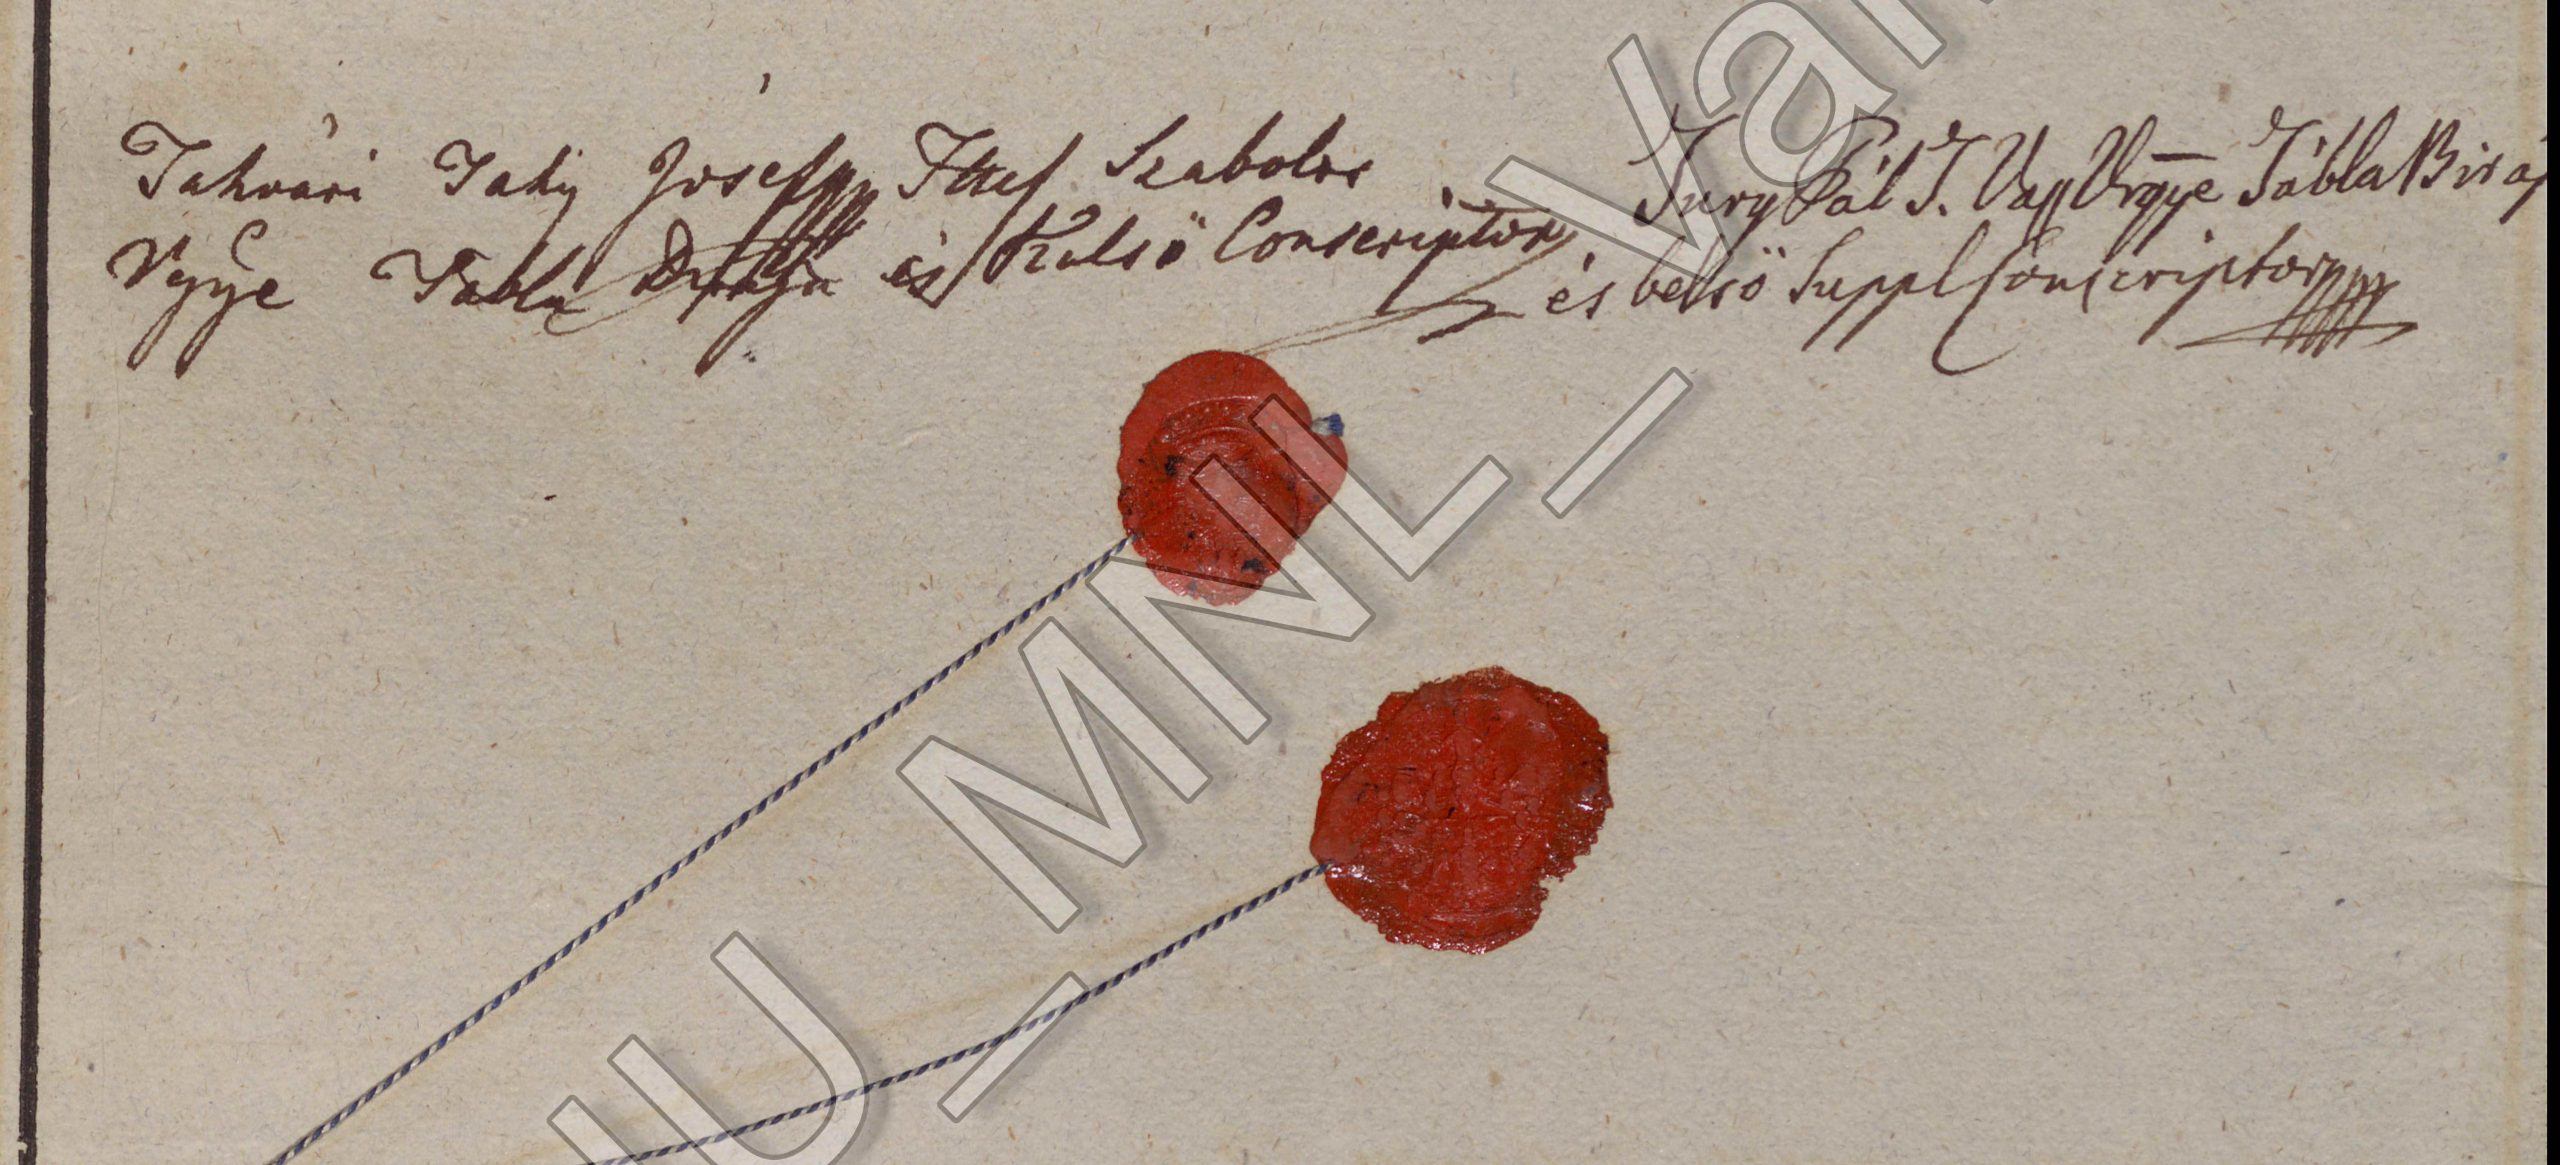 Tahvári Tahy József Ttes Szabolcs
Vgyye Tábla Birája és Külső Conscriptor
Jury Pál T. Vas Vrgye Tábla Birája
és belső Suppl Conscriptor
HU_MNL_Var